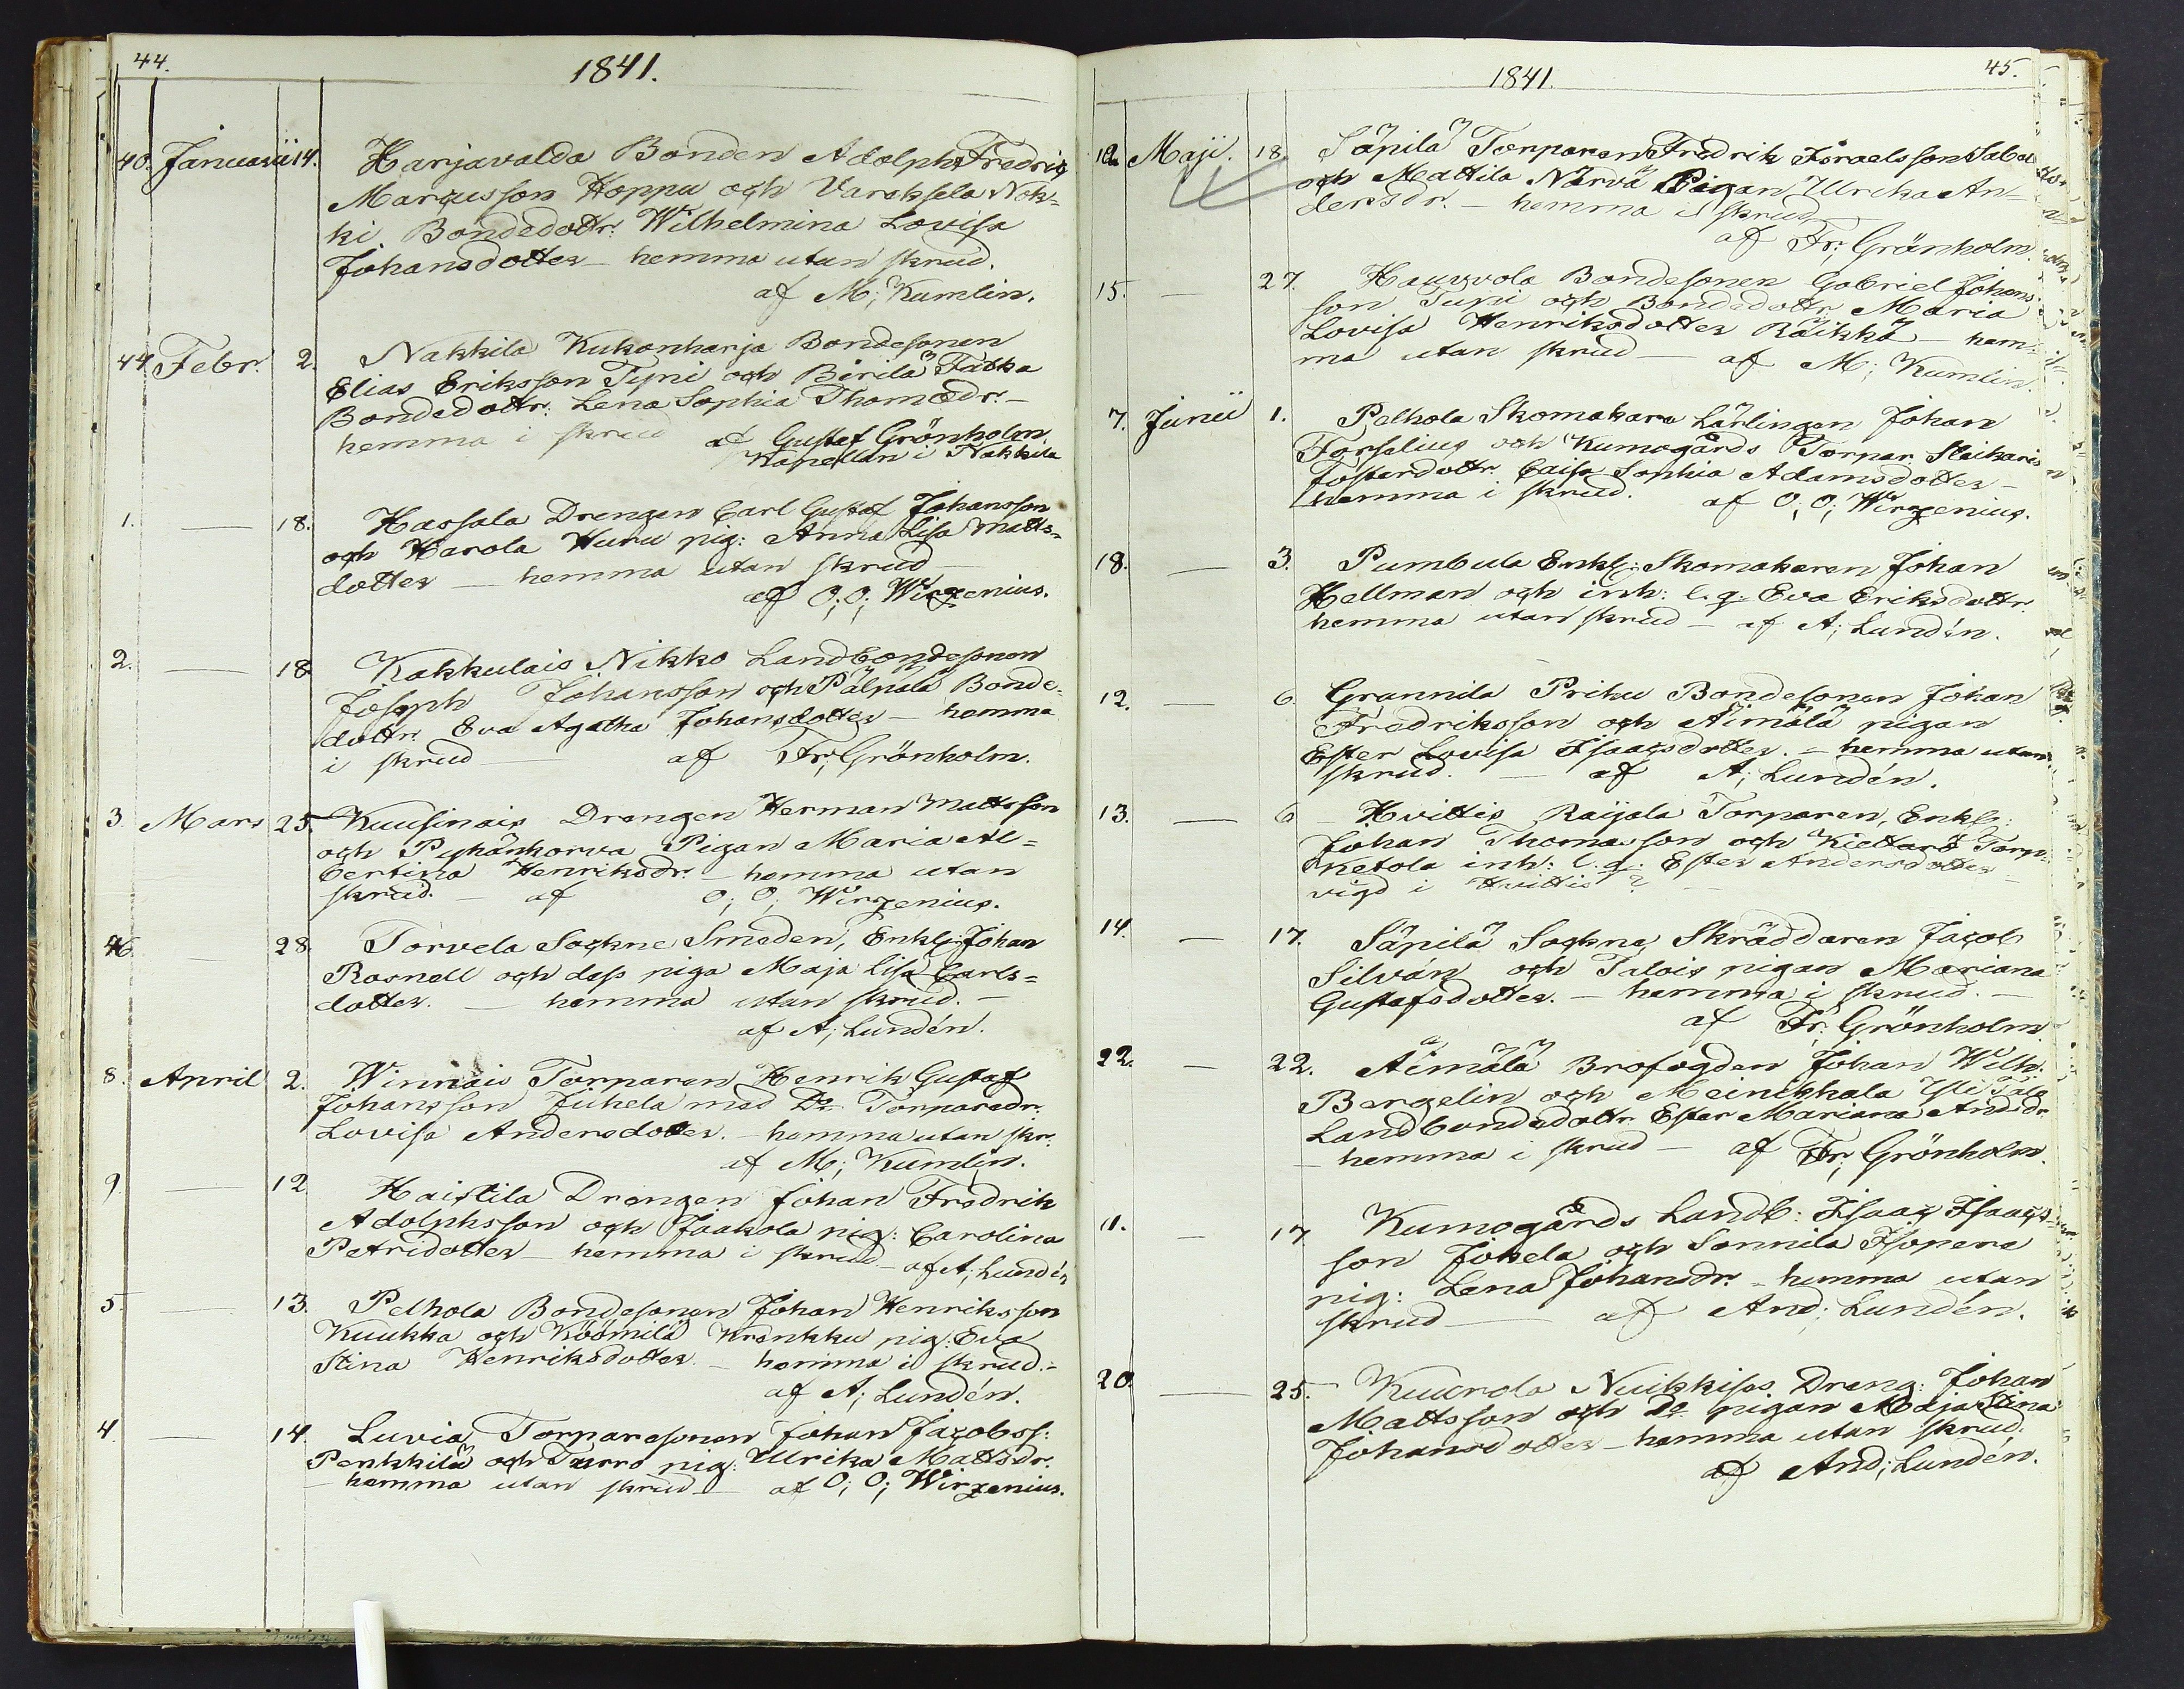 44.
1841.
40. Januarii 14. Harjavalda Bonden Adolph Fredric
Marcusson Hoppu och Vareksela Nok=
ki Bondedottr: Wilhelmina Lovisa
Johansdotter — hemma utan skrud.
af M; Kumlin.
44 Febr. 2. Nakkila Kukonharja Bondesonen
Elias Eriksson Tyni och Birilä Fatka
Bondedottr: Lena Sophia Thomædr: —
hemma i skrud af Gustaf Grönholm
Kapellan i Nakkila
1. — 18. Hassala Drengen Carl Gustaf Johansson
och Harola Huru pig: Anna Lisa Matts=
dotter — hemma utan skrud —
af O; O; Wirzenius.
2. — 18 Kakkulais Nikko Landbondesonen
Joseph Johansson och Pälpälä Bonde=
dottr: Eva Agatha Johansdotter — hemma
i skrud — af Fr; Grönholm.
3 Mars 25. Kuusinais Drengen Herman Mattsson
och Pyhänkorva Pigan Maria Al=
bertina Henriksdr: — hemma utan
skrud. — af O; O; Wirzenius.
46 28. Torvela Sockne Smeden, Enkl: Johan
Rosnell och dess piga Maja Lisa Carls=
dotter. — hemma utan skrud. —
af A; Lundén.
8. April 2. Winnais Torparen Henrik Gustaf
Johansson Juhela med Do Torparedr.
Lovisa Andersdotter. — hemma utan skr.
af M; Kumlin.
9. — 12 Haistila Drengen Johan Fredrik
Adolphsson och Jaakola pig: Carolina
Petridotter — hemma i skrud — af A; Lundén
5. — 13. Pelhola Bondesonen Johan Henriksson
Kuukka och Köömilä Krankku pig: Eva
Stina Henriksdotter — hemma i skrud. —
af A; Lundén.
4 — 14. Luvia Torparesonen Johan Jacobss:
Penkkilä och Tuurro pig: Ulrika Mattsdr.
— hemma utan skrud — af O; O; Wirzenius.
1841.
45.
Maji. 18. Säpilä Torparen Fredrik Israelsson
och Mattila Närvä Pigan Ulrika An=
dersdr. — hemma i skrud
af Fr; Grönholm.
15. — 27. Haugvola Bondesonen Gabriel Johans
son Tupi och Bondedottr. Maria
Lovisa Henriksdotter Räikkä — hem=
ma utan skrud — af M; Kumlin.
7. Junii 1. Pelhola Skomakare Lärlingen Johan
Forselius och Kumogårds Torpar
Fosterdottr. Caisa Sophia Adamsdotter —
hemma i skrud. af O; O; Wirzenius.
18. — 3. Pumbula Enkl: Skomakaren Johan
Hellman och inh: l. q. Eva Eriksdottr.
hemma utan skrud — af A; Lundén.
12. — 6. Grannila Priku Bondesonen Johan
Fredriksson och Äimälä pigan
Ester Lovisa Isaacsdotter. — hemma utan
skrud. — af A; Lundén.
13. — 6 — Hvittis Raijala Torparen, Enkl:
Johan Thomasson och Kiettarö Torp:
Ketola inh: l. q. Ester Andersdotter —
vigd i Hvittis?
14. — 17. Säpilä Sockne Skräddaren Jacob
Silvén och Talois pigan Mariana
Gustafsdotter. — hemma i skrud. —
af Fr; Grönholm.
22. — 22. Äimälä Brofogden Johan Wilh.
Bergelin och Meinikkala Yli Talo
Landbondedottr Ester Mariana Andsdr.
— hemma i skrud — af Fr; Grönholm.
11. — 17 Kumogårds Landb: Isaac Isaacs=
son Jokela och Sonnila Isopere
pig: Lena Johansdr: — hemma utan
skrud — af And; Lundén.
20. — 25. Kuurola Nuikkiss Dreng: Johan
Mattsson och Do pigan Maja Stina
Johansdotter — hemma utan skrud.
af And; Lundén.